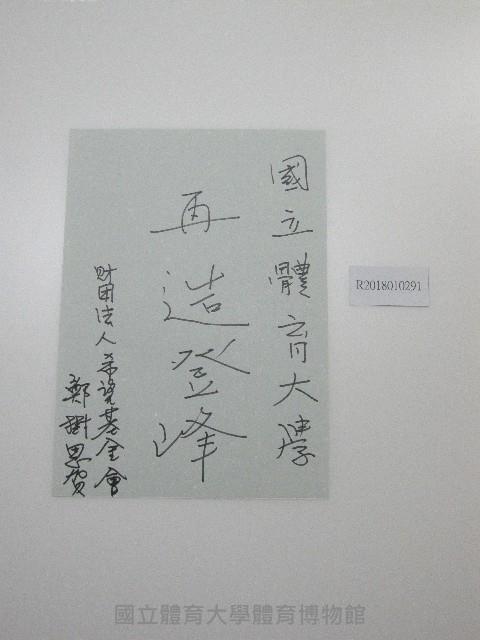 國立體育大學
再造登峰
財團法人希望基金會
鄭樹恩賀
R2018010291
國立體育大學體育博物館